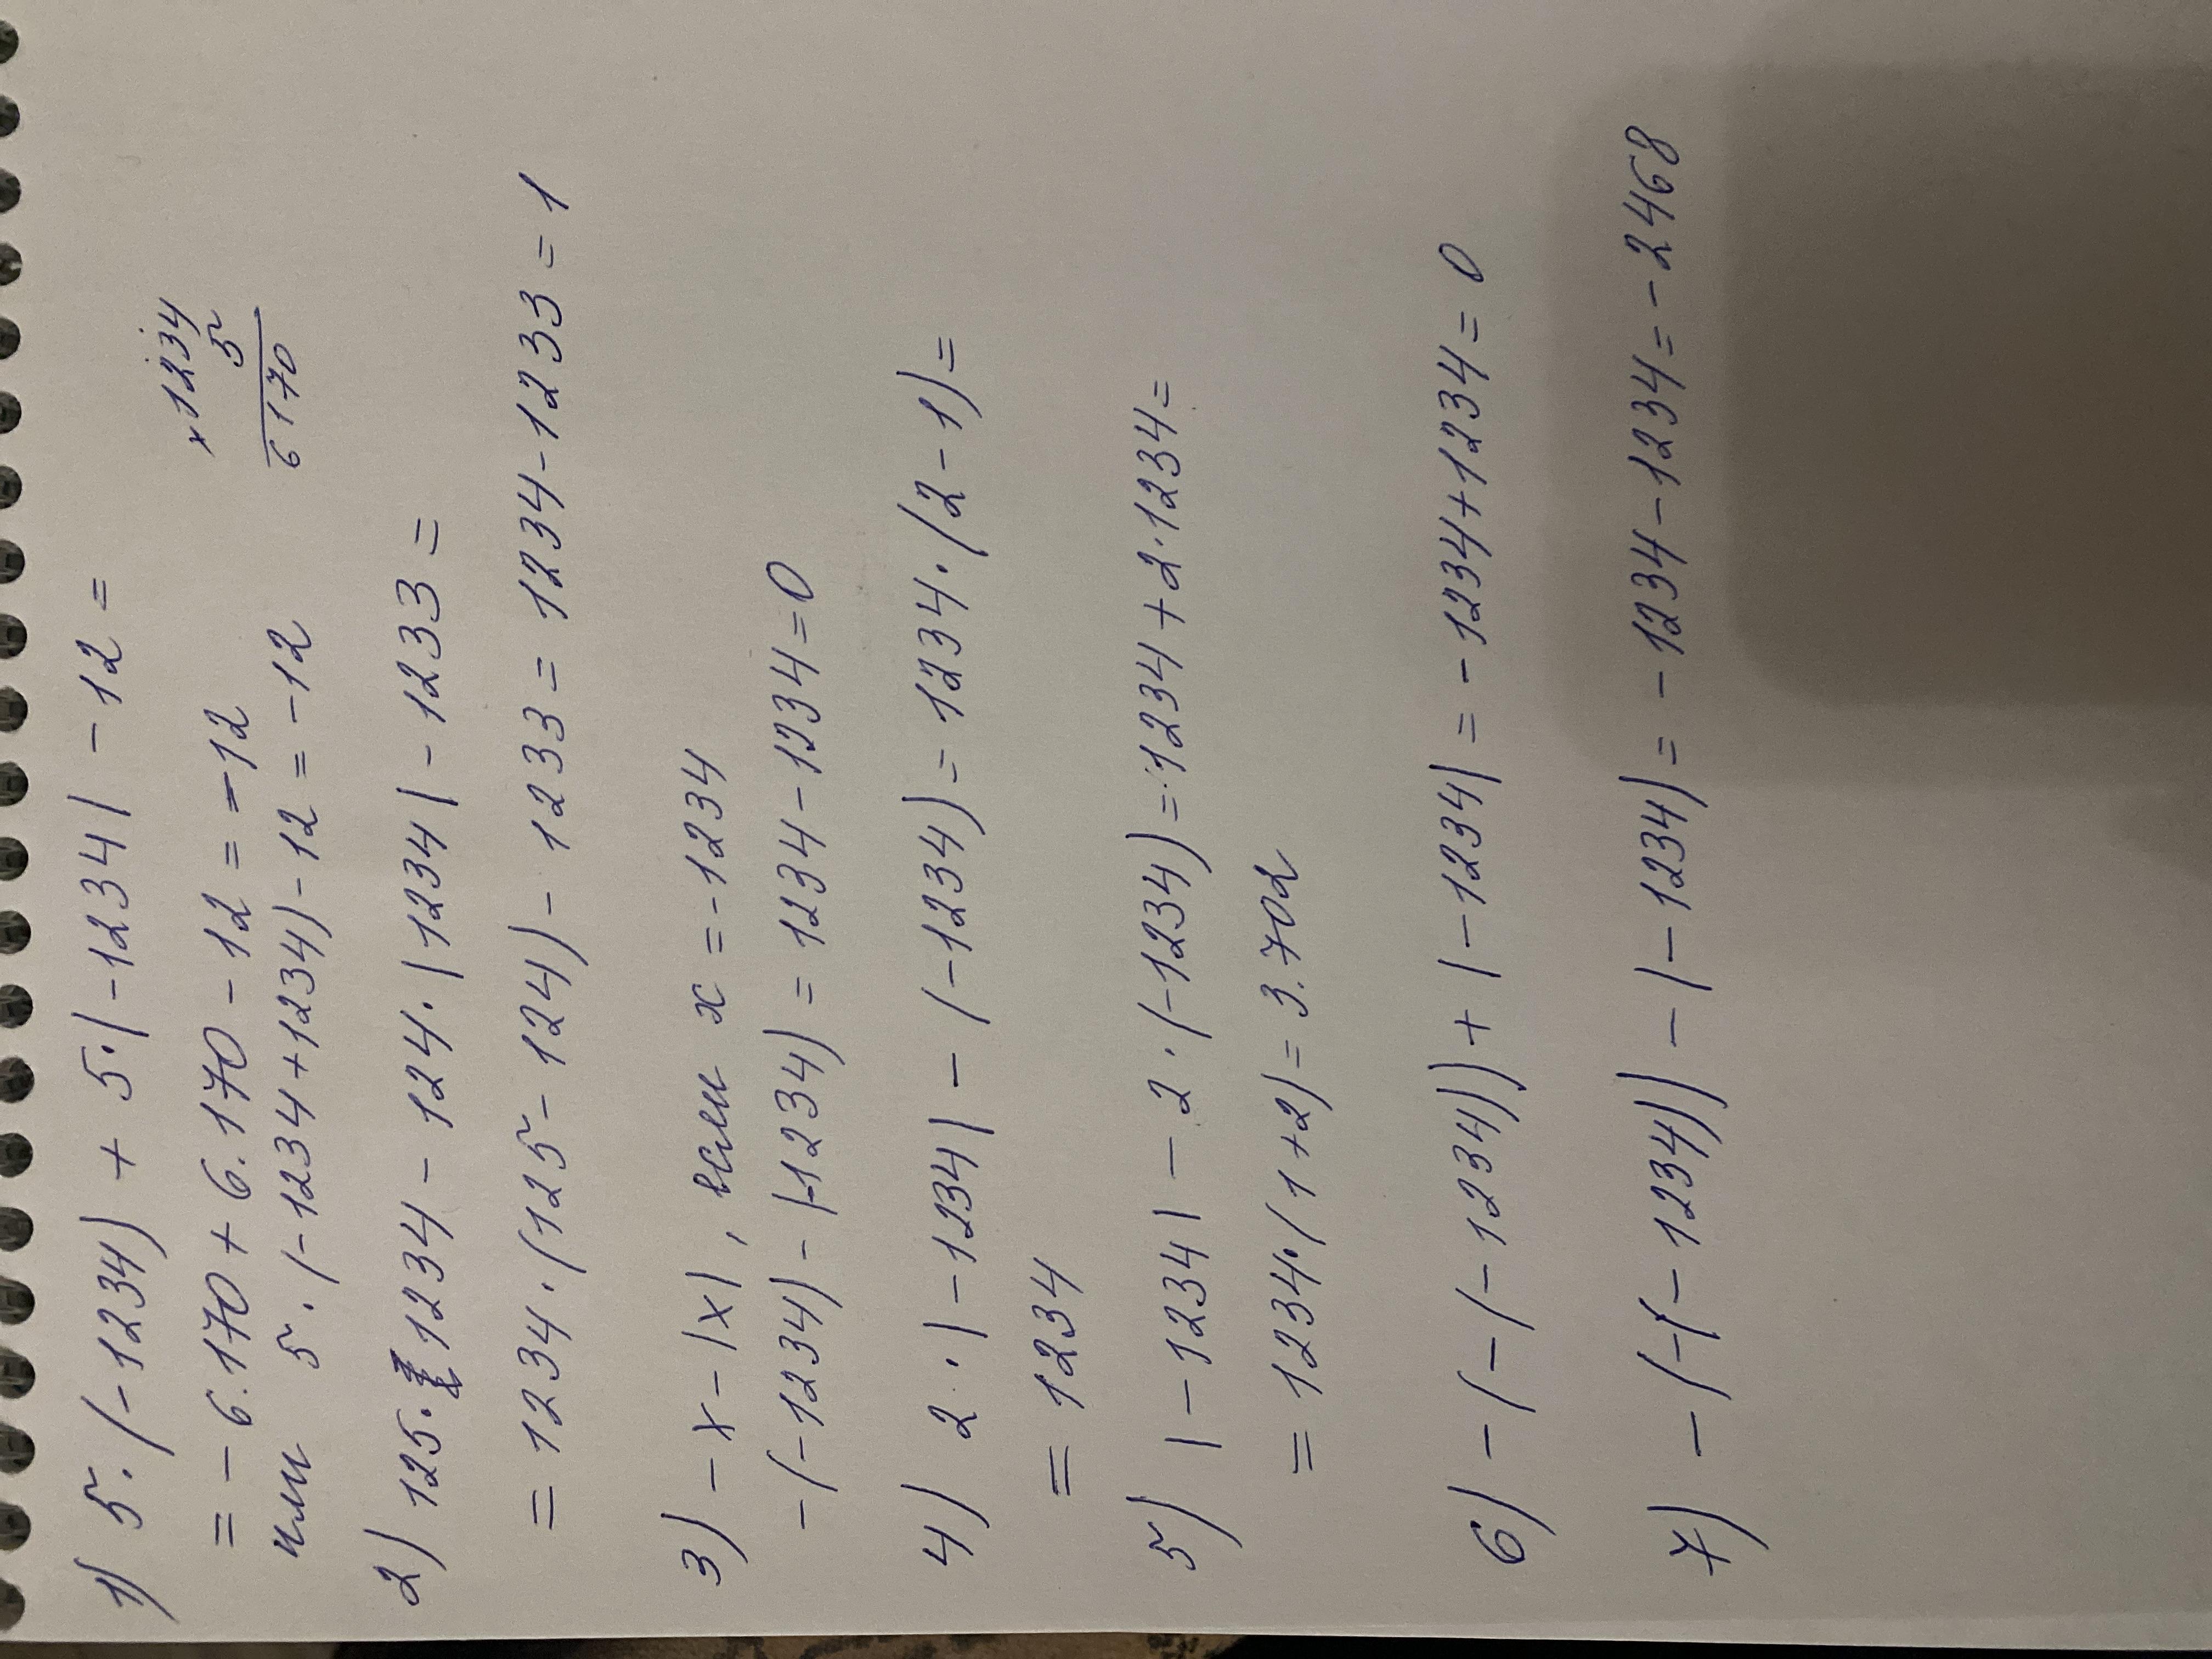 1) 5·(-1234) + 5·|-1234| - 12 =
= - 6.170 + 6.170 - 12 = -12
× 1234
5
6170
или 5·(-1234+1234) - 12 = -12
2) 125· 1234 - 124·|1234| - 1233 =
= 1234·(125 - 124) - 1233 = 1234 - 1233 = 1
3) -x - |x|, если x = -1234
-(-1234) - |-1234| = 1234 - 1234 = 0
4) 2·|-1234| - (-1234) = 1234·(2-1) =
= 1234
5) |-1234| - 2·(-1234) = 1234 + 2·1234 =
= 1234·(1+2) = 3.702
6) -(-(-1234)) + |-1234| = -1234+1234 = 0
7) -(-(-1234)) - |-1234| = -1234-1234 = -2468